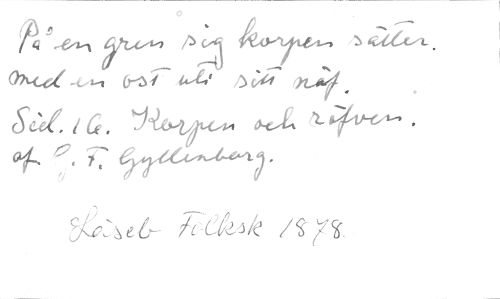 På en gren sig korpen sätter.
med en ost uti sitt näf.
Sid. 16. Korpen och räfven.
af G. F. Gyllenborg.
Läseb Folksk 1878.